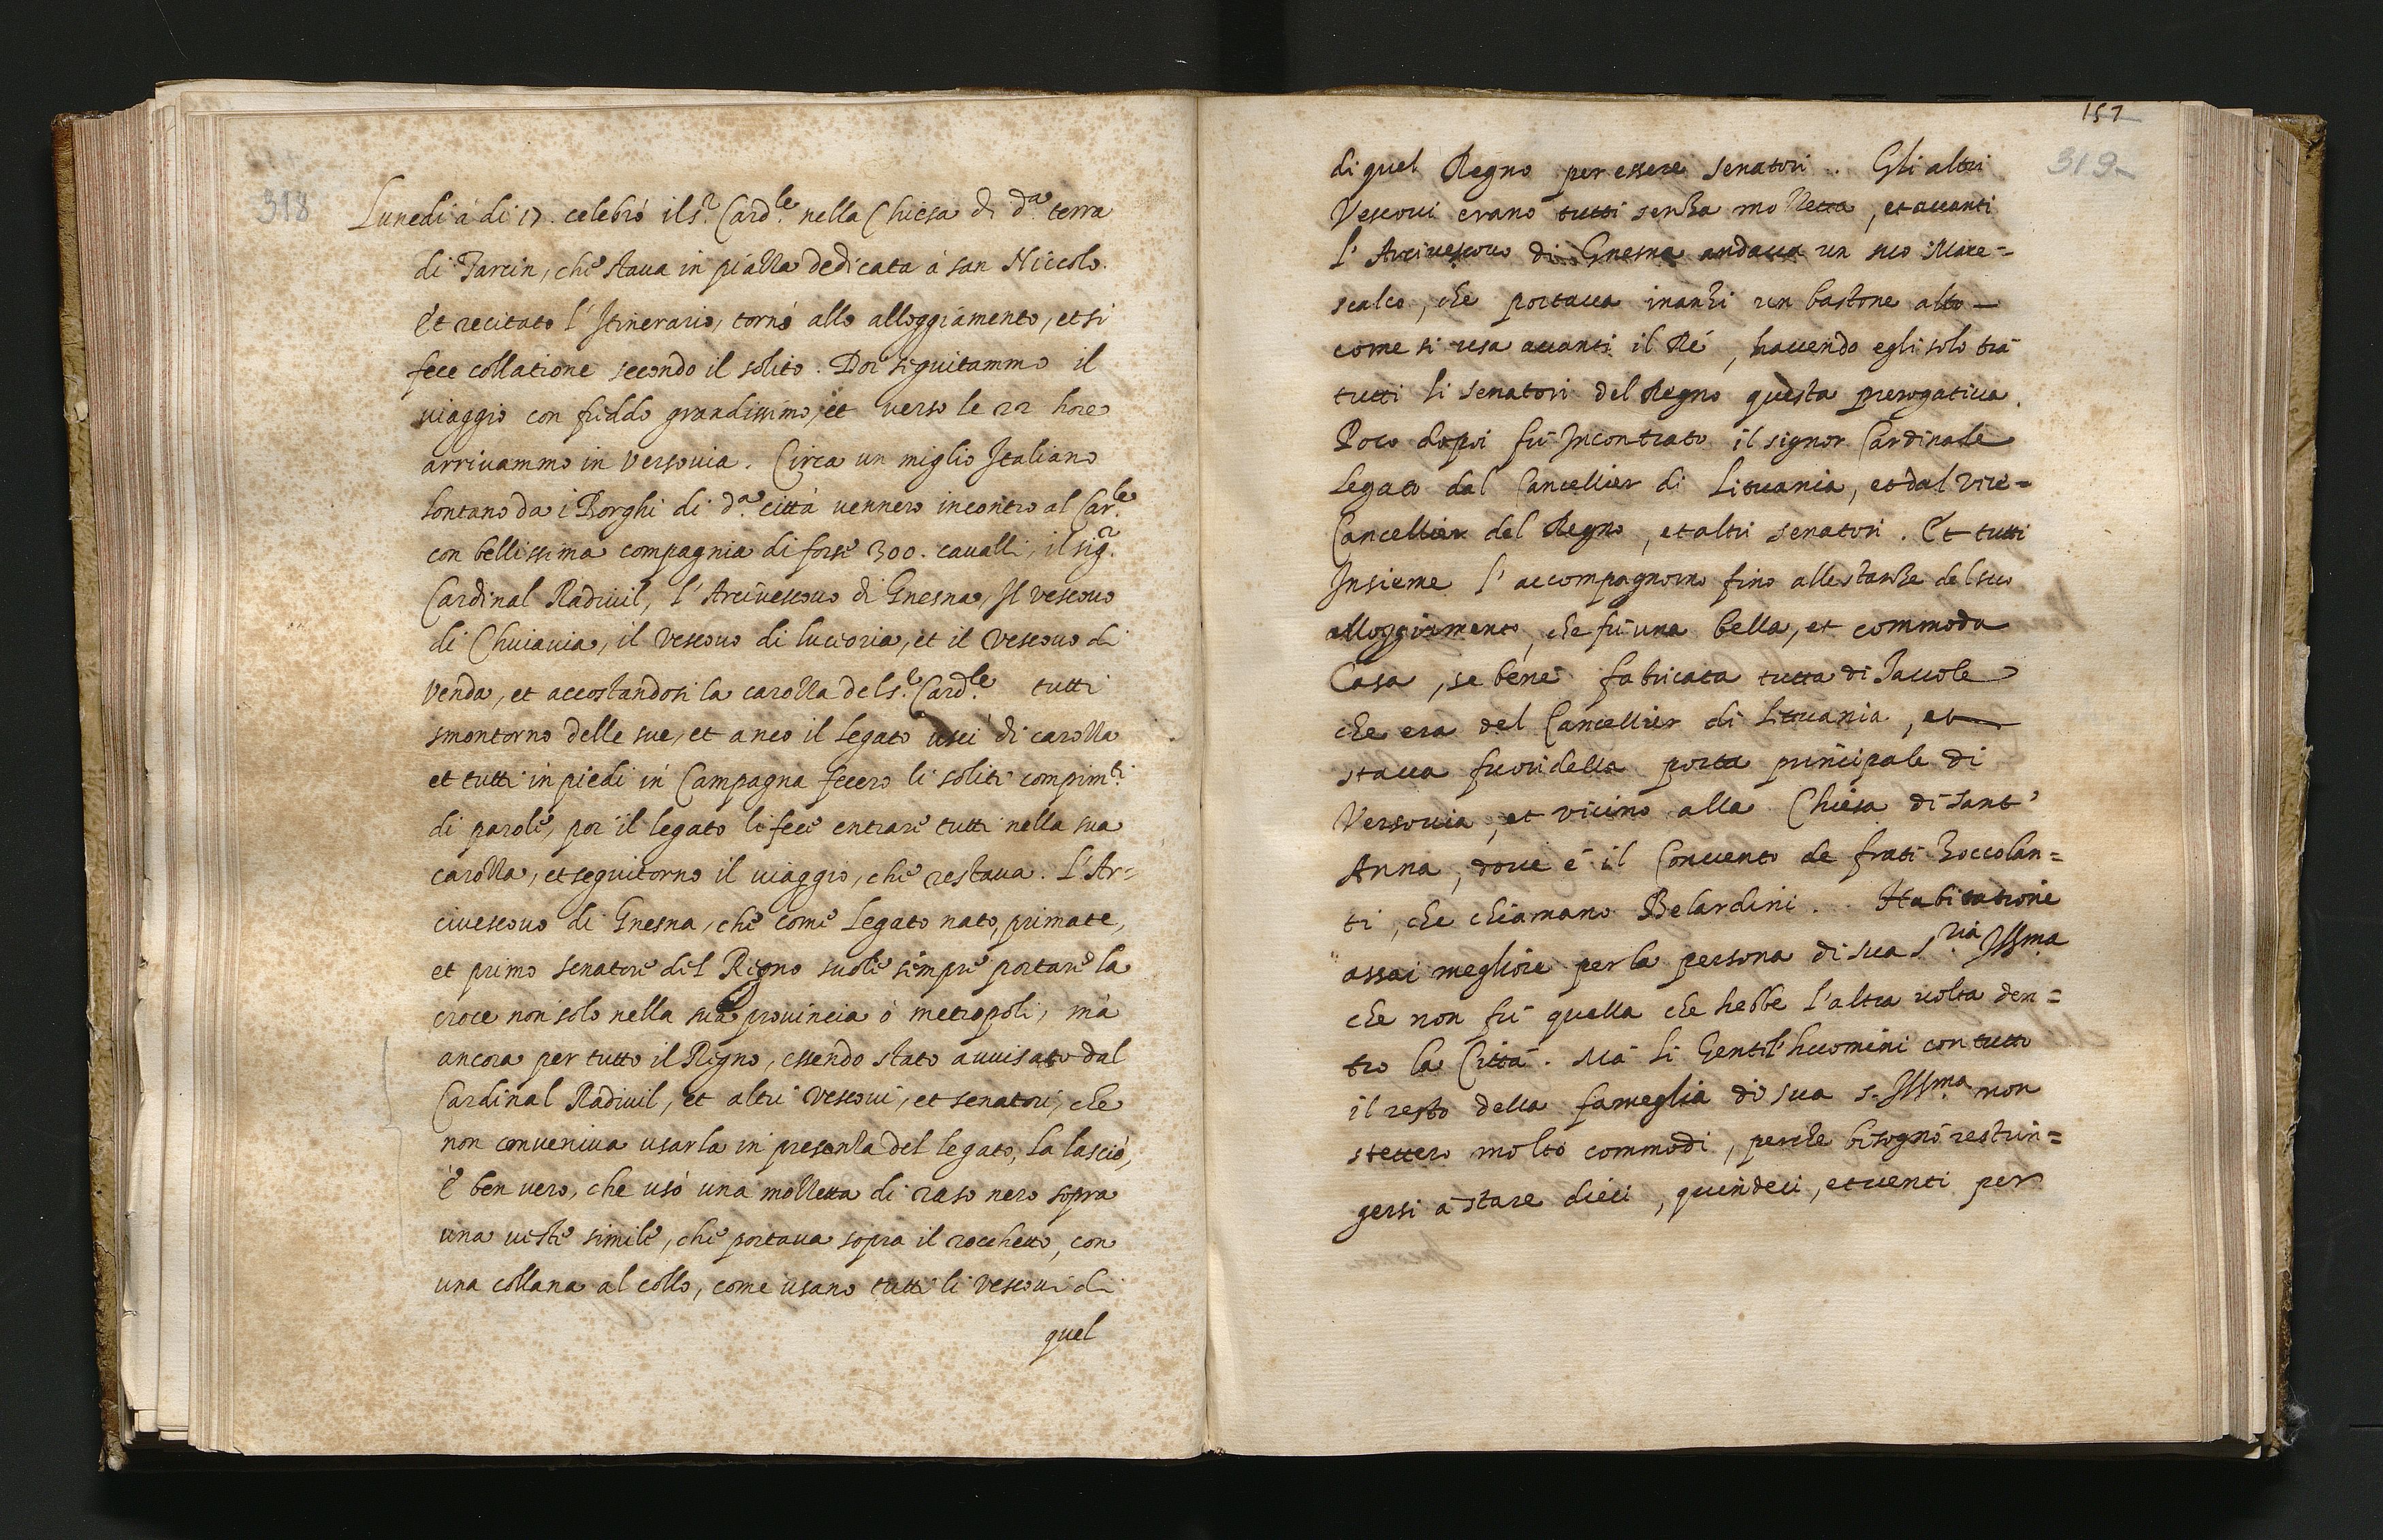 318
Lunedi à di 17. celebrò il s.r Card.le nella Chiesa di d.a terra
di Tarcin, che staua in piazza dedicata à san Niccolo.
Et recitato l'Itinerario, tornò allo alloggiamento, et si
fece collatione secondo il solito. Poi seguitammo il
uiaggio con freddo grandissimo, et verso le 22 hore
arriuammo in Versouia. Circa un miglio Italiano
lontano da i Borghi di d.a città uennero incontro al Car.le
con bellissima compagnia di forse 300. caualli, il sig.r
Cardinal Radiuil, l'Arciuescouo di Gnesna, Il vescouo
di Chuiauia, il vescouo di lucioria, et il Vescouo di
Venda, et accostandosi la carozza del s.r Card.le tutti
smontorno delle sue, et anco il Legato uscì di carozza
et tutti in piedi in Campagna fecero li soliti compim.ti
di parole, poi il legato li fece entrare tutti nella sua
carozza, et seguitorno il uiaggio, che restaua. L'Ar=
ciuescouo di Gnesna, che come Legato nato, primate,
et primo senatore del Regno suole sempre portare la
croce non solo nella sua prouincia ò metropoli, mà
ancora per tutto il Regno, essendo stato auuisato dal
Cardinal Radiuil, et altri Vescoui, et senatori, che
non conueniua usarla in presenza del legato, la lasciò,
è ben uero, che usò una mozzetta di raso nero sopra
una ueste simile, che portaua sopra il rocchetto, con
una collana al collo, come usano tutti li vescoui di
quel
157
319
di quel Regno per essere senatori. Gli altri
Vescoui erano tutti senza mozzetta, et auanti
l'Arciuescouo di Gnesna andaua un suo Mare=
scalco, che portaua inanzi un bastone alto
come si usa auanti il Rè, hauendo egli solo trà
tutti li senatori del Regno questa prerogatiua.
Poco dopoi fù Incontrato il signor Cardinale
Legato dal Cancellier di Lituania, et dal vice=
Cancellier del Regno, et altri senatori. Et tutti
Insieme l'accompagnorno fino alle stanze del suo
alloggiamento, che fù una bella, et commoda
Casa, se bene fabricata tutta di Tauole
che era del Cancellier di Lituania, et
staua fuori della porta principale di
Versouia, et vicino alla Chiesa di Sant'
Anna, doue è il Conuento de frati Zoccolan=
ti, che chiamano Belardini. Habitatione
assai megliore per la persona di sua s.ria Ill.ma
che non fù quella che hebbe l'altra uolta den=
tro la Città. Mà li Gentil'huomini con tutto
il resto della fameglia di sua s. Ill.ma non
stettero molto commodi, perche bisognò restrin=
gersi à stare dieci, quindeci, et uenti per